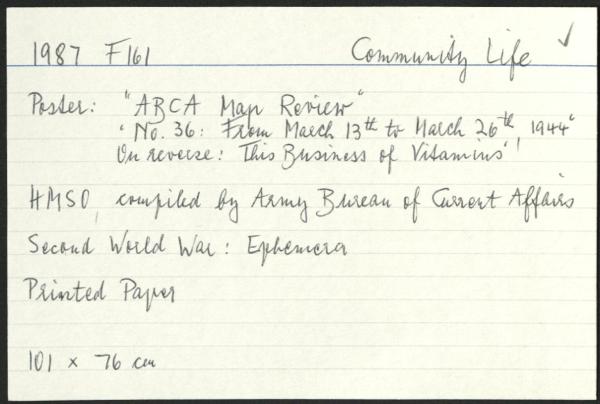 1987 F161 Community Life ✓
Poster: "ABCA Map Review"
"No. 36: From March 13th to March 26th, 1944"
On reverse: 'This Business of Vitamins'
HMSO, compiled by Army Bureau of Current Affairs
Second World War: Ephemera
Printed Paper
101 x 76 cm